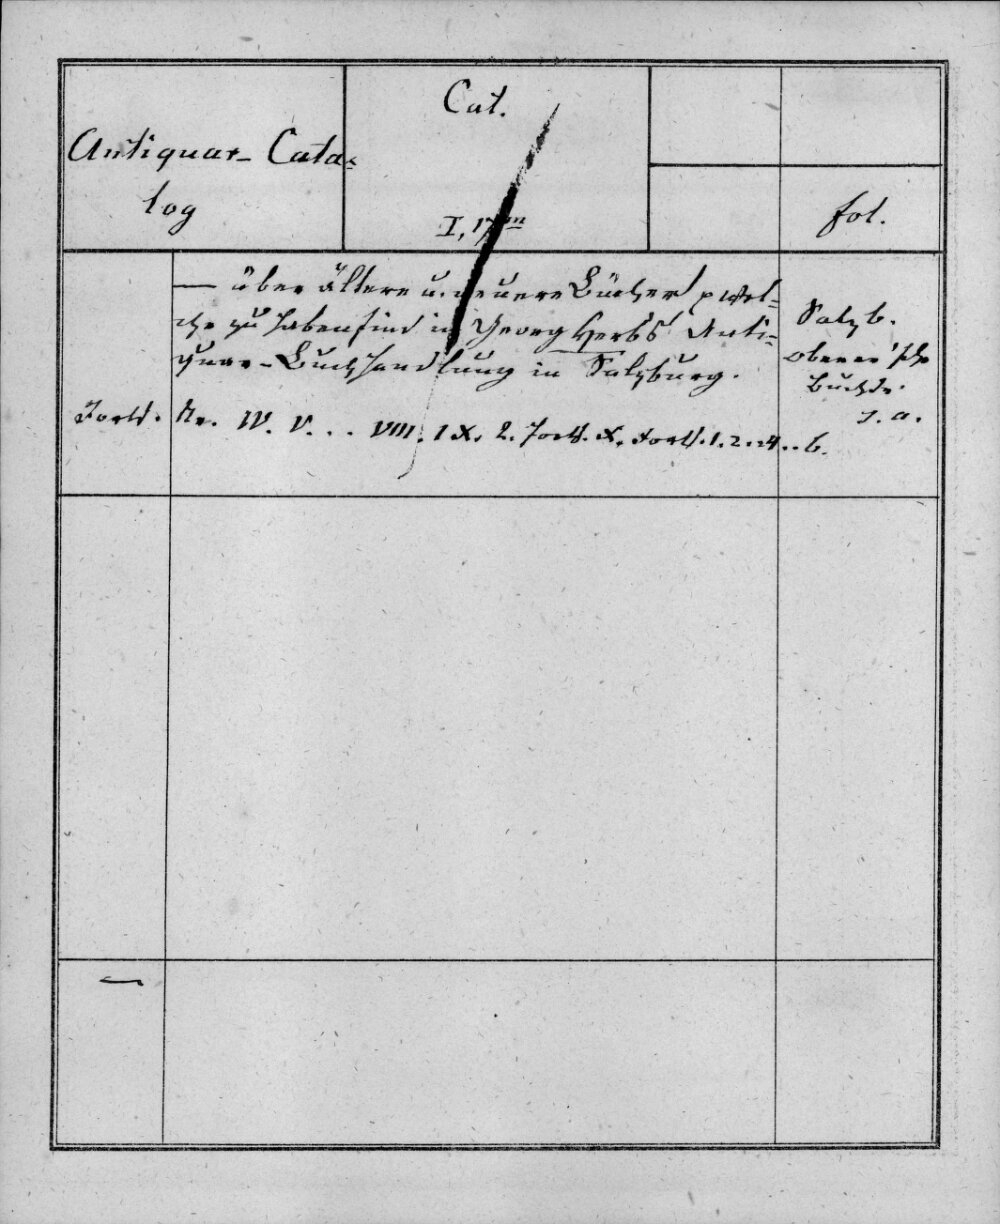 Antiquar- Cata-
log
Cat.
I, 17 m
fol.
— über ältere u. neuere Bücher, wel-
che zu haben sind in Georg Herbs Anti-
quar-Buchhandlung in Salzburg.
Salzb.
oberer'sche
Buchdr.
s. a.
Forts. Nr. IV. V. . . VIII. IX. 2. Forts. X. Forts. 1. 2. 4 . . 6.